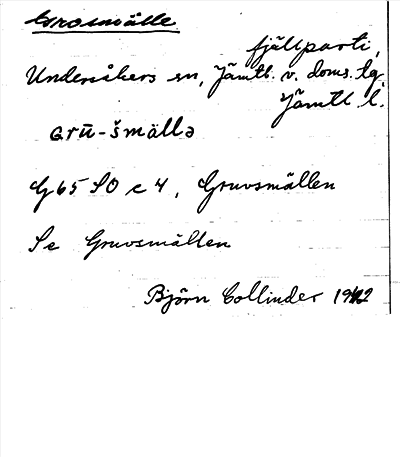 Grosmälle
fjällparti,
Undersåkers sn, Jämtl. v. doms. lg.
Jämtl. l.
Grū-šmällə
G 65 SO c 4, Gruvsmällen
Se Gruvsmällen
Björn Collinder 1942